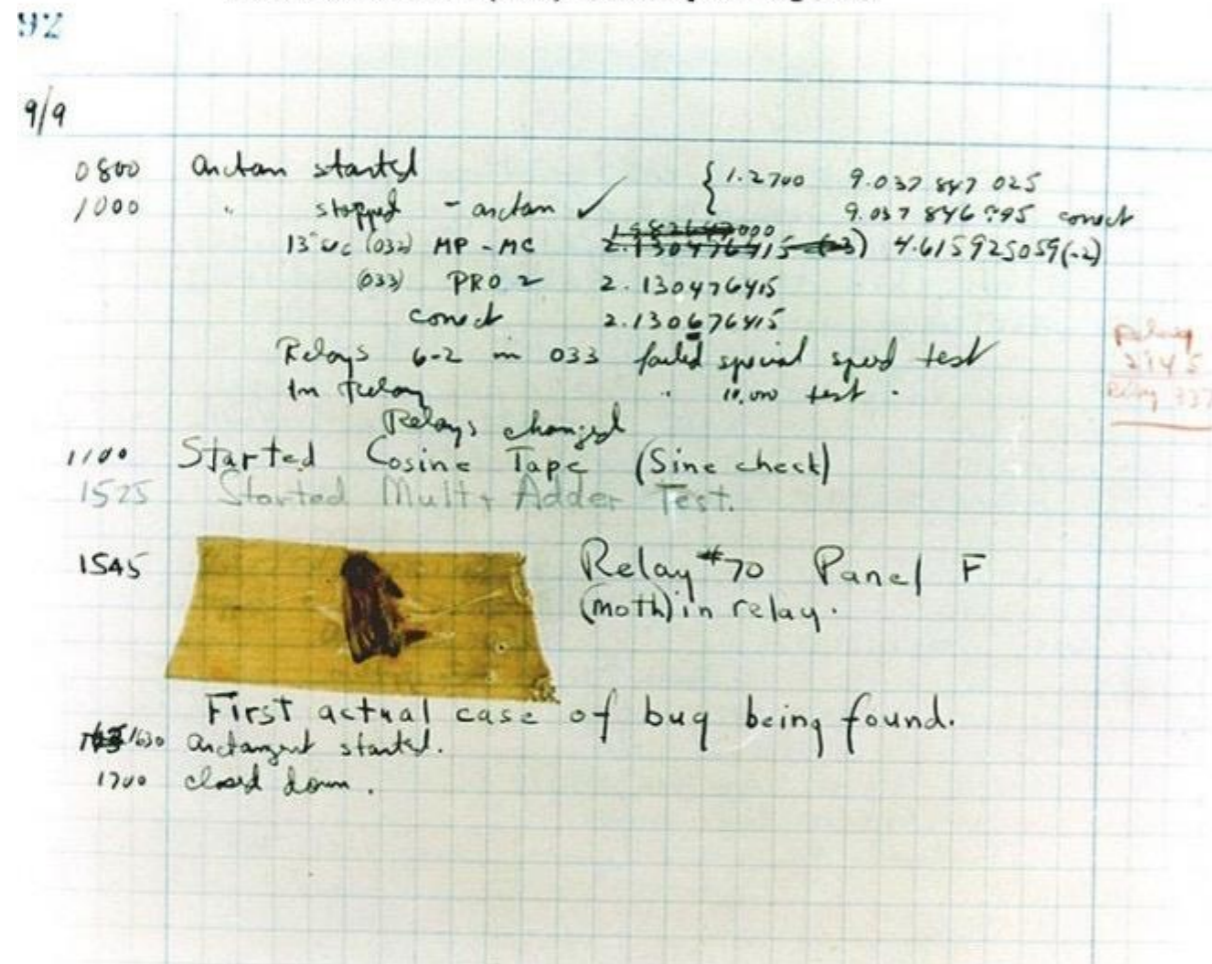 92
9/9
0800 arctan started { 1.2700 9.037 847 025
1000 " stopped - arctan ✓ 9.037 846 995 correct
13"uc (032) MP - MC 2.130476415 (-3) 4.615925059(-2)
(033) PRO 2 2.130476415
correct 2.130676415
Relays 6-2 in 033 failed special speed test
In Relay " 10,000 test .
Relays changed
Relay
2145
Relay 337
1100 Started Cosine Tape (Sine check)
1525 Started Mult + Adder Test.
1545 Relay #70 Panel F
(moth) in relay.
First actual case of bug being found.
1630 arctangent started.
1700 closed down.